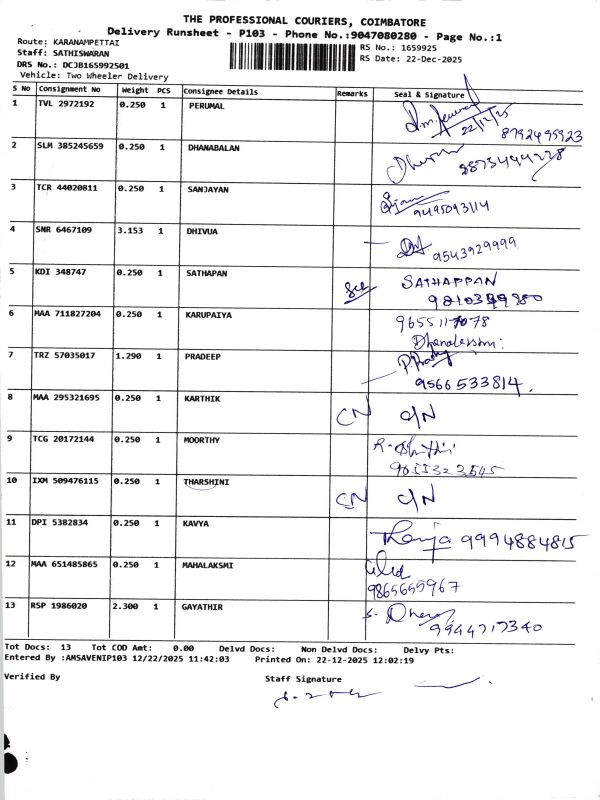 THE PROFESSIONAL COURIERS, COIMBATORE
Delivery Runsheet - P103 - Phone No.:9047080280 - Page No.:1
Route: KARANAMPETTAI
Staff: SATHISWARAN
DRS No.: DCJB165992501
Vehicle: Two Wheeler Delivery
RS No.: 1659925
RS Date: 22-Dec-2025
S No Consignment No Weight PCS Consignee Details Remarks Seal & Signature
1 TVL 2972192 0.250 1 PERUMAL
22/12/25
8792495923
2 SLM 385245659 0.250 1 DHANABALAN
8873444228
3 TCR 44020811 0.250 1 SANJAYAN
9495093114
4 SNR 6467109 3.153 1 DHIVUA
9543929999
5 KDI 348747 0.250 1 SATHAPAN
Self SATHAPPAN
6 MAA 711827204 0.250 1 KARUPAIYA
7 TRZ 57035017 1.290 1 PRADEEP
9566533814.
8 MAA 295321695 0.250 1 KARTHIK CN C/N
9 TCG 20172144 0.250 1 MOORTHY
9655323545
10 IXM 509476115 0.250 1 THARSHINI CN C/N
11 DPI 5382834 0.250 1 KAVYA
9994884815
12 MAA 651485865 0.250 1 MAHALAKSMI
9865659967
13 RSP 1986020 2.300 1 GAYATHIR
9944717340
Tot Docs: 13 Tot COD Amt: 0.00 Delvd Docs: Non Delvd Docs: Delvy Pts:
Entered By :AMSAVENIP103 12/22/2025 11:42:03 Printed On: 22-12-2025 12:02:19
Verified By Staff Signature